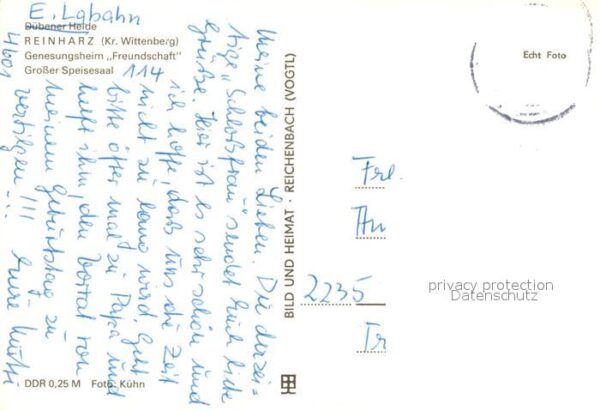 E. Labahn
Dübener Heide
REINHARZ (Kr. Wittenberg)
Genesungsheim „Freundschaft"
Großer Speisesaal
114
4601
Meine beiden Lieben. Die derzei-
tige „Schloßfrau" sendet Euch liebe
Grüße. Hier ist es sehr schön und
ich hoffe, daß uns die Zeit
nicht zu lang wird. Geht
bitte öfter mal zu Papa und
helft ihm, den Vorrat von
meinem Geburtstag zu
vertilgen!!! Eure Mutti
DDR 0,25 M Foto: Kühn
BILD UND HEIMAT · REICHENBACH (VOGTL)
Echt Foto
Frl.
An
2235
Tr
privacy protection
Datenschutz